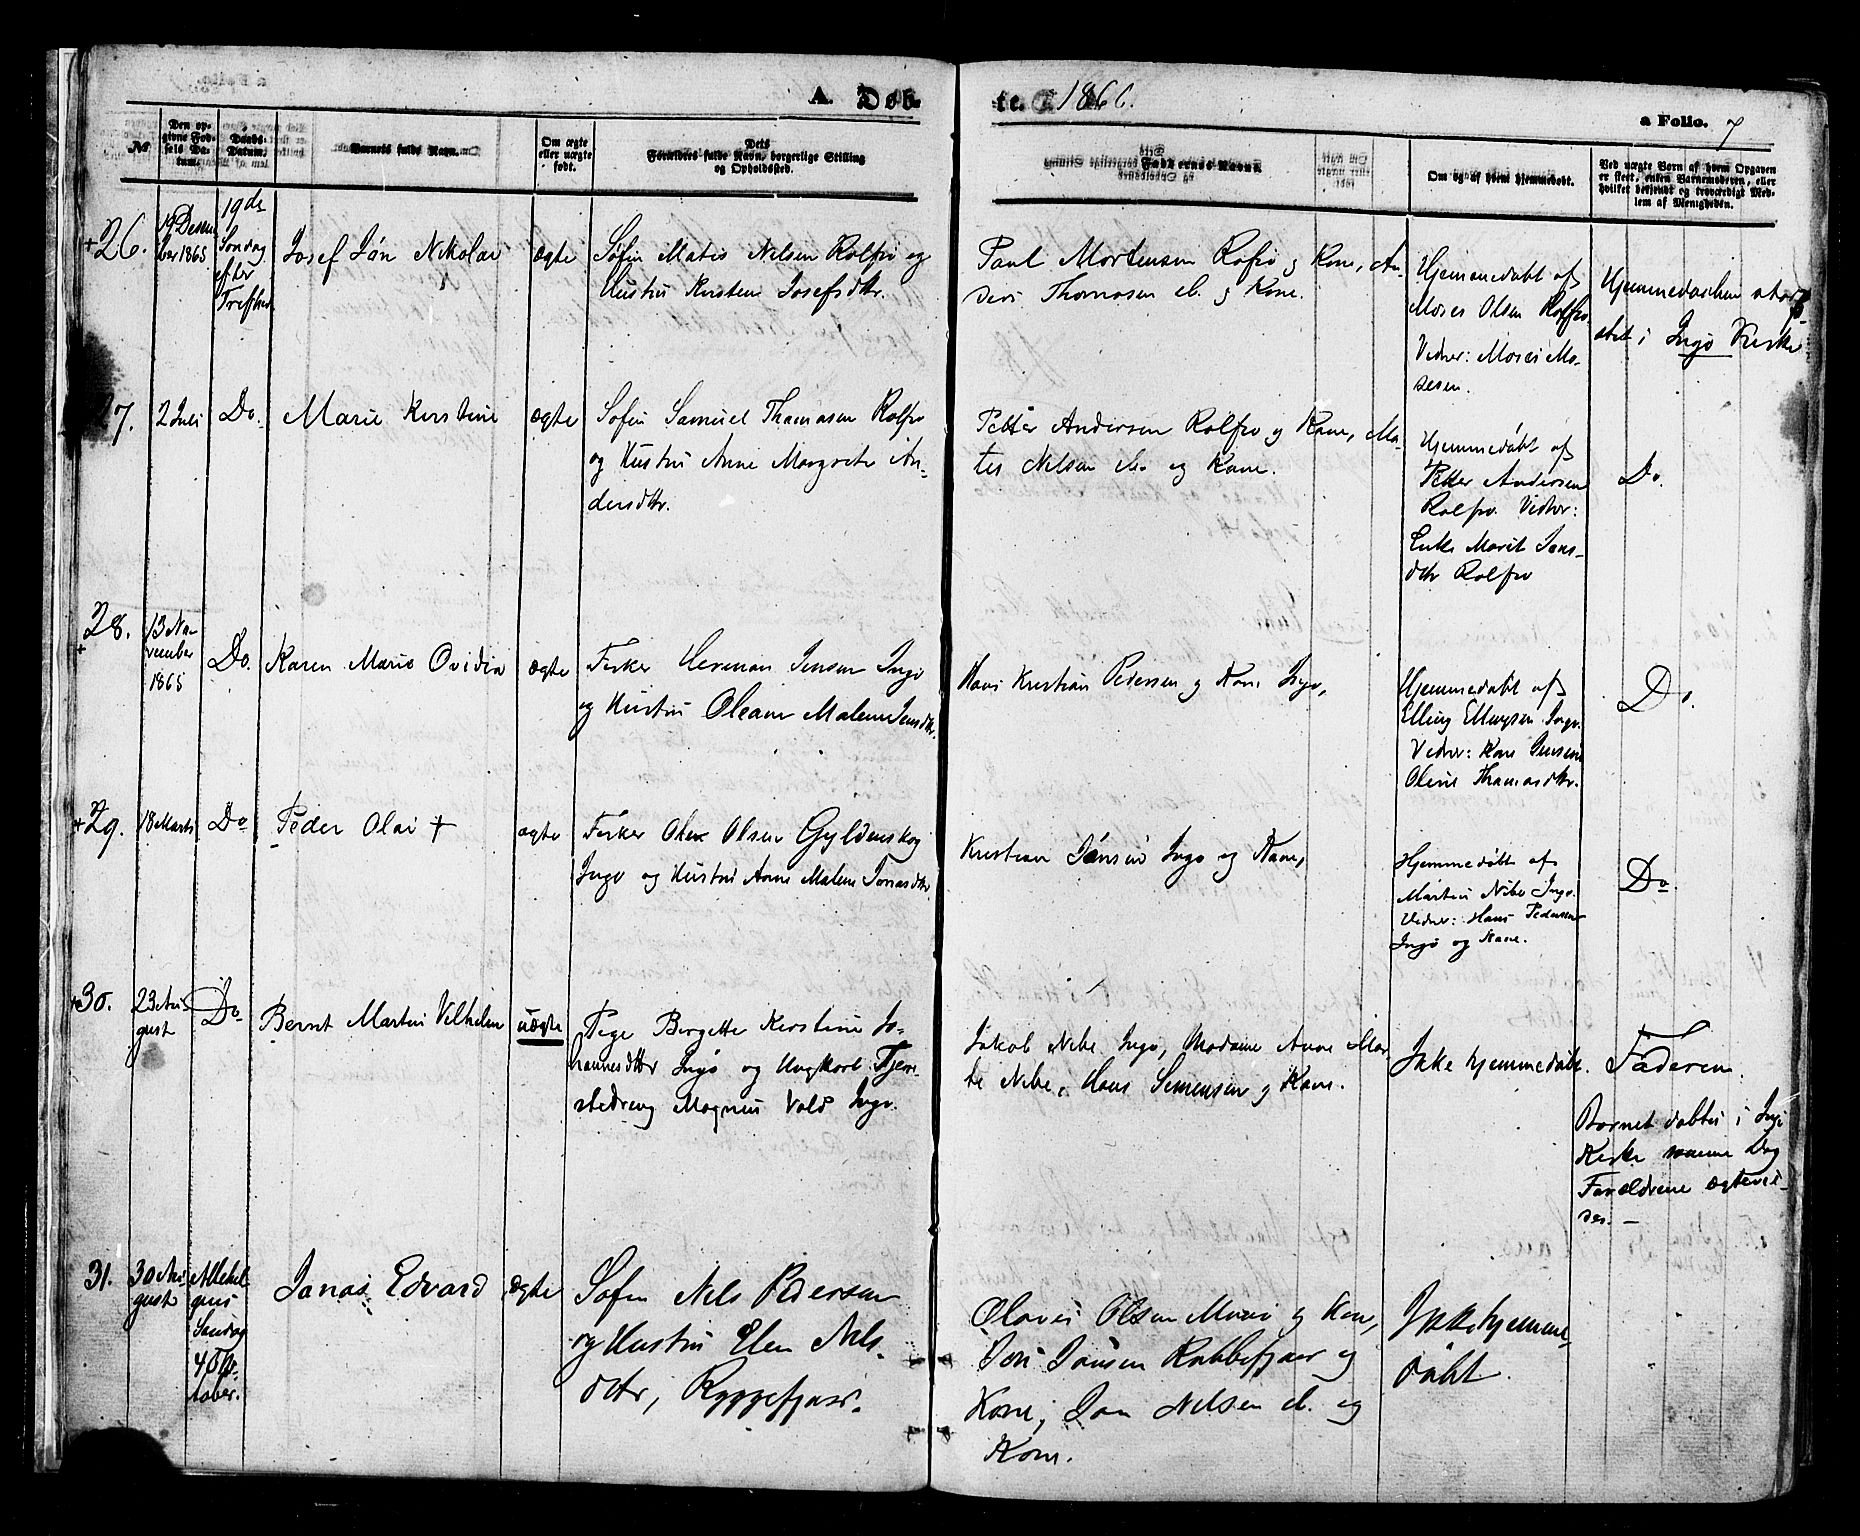 A. Døb-
te. 1866.
a Folio. 7
№
Den op-
givne Fød-
sels Da-
tum.
Daabs-
Datum.
Barnets fulde Navn.
Om ægte
eller uægte
født.
Dets
Forældres fulde Navn, borgerlige Stilling
og Opholdssted.
Faddernes Navne
Om og af hvem hjemmedøbt.
Ved uægte Børn af hvem Opgaven
er skeet, enten Barnemoderen, eller
hvilket bekjendt og troværdigt Med-
lem af Menigheden.
+ 26.
19 Decem
ber 1865
19de
Søndag
efter
Trefhed
Josef Jón Nikolai
ægte
Søfin Matis Nilsen Rolfsø og
Hustru Kirsten Josefsdtr.
Paul Mortensen Rofsø og Kone, An-
ders Thomasen ib. og Kone.
Hjemmedøbt af
Moses Olsen Rolfsø.
Vidner: Moses Mo-
sesen.
Hjemmedaaben stadf-
stet i Ingø Kirke
27.
2 Juli
Do.
Marie Kirstine
ægte
Søfin Samuel Thomasen Rolfsø
og Hustru Anne Margrete An-
dersdtr.
Petter Andersen Rolfsø og Kone, Ma-
tis Nilsen ib. og Kone.
Hjemmedøbt af
Petter Andersen
Rolfsø. Vidner:
Enke Marit Jons-
dtr Rolfsø
Do.
+ 28.
13 No-
vember
1865
Do.
Karen Marie Ovidia
ægte
Fisker Herman Jensen Ingø
og Hustru Oleane Malene Jensdtr.
Hans Kristian Pedersen og Kone Ingø,
Hjemmedøbt af
Elling Ellingsen Ingø.
Vidner: Kone
Oline Thomasdtr.
Do.
+ 29.
18 Marts
Do
Peder Olai †
ægte
Fisker Ole Olsen Gyldenskog
Ingø og Hustru Anne Malene Jonasdtr.
Kristian Jónsen Ingø og Kone,
Hjemmedøbt af
Martin Nibe Ingø.
Vidner: Hans Pedersen
Ingø og Kone.
Do.
+ 30.
23 Au-
gust
Do
Bernt Martin Vilhelm
uægte
Pige Bergette Kirstine Jo-
hannesdtr Ingø og Ungkarl Tjene-
stedreng Magnus Vold Ingø.
Jakob Nibe Ingø, Madame Anne Mar-
te Nibe, Hans Simensen og Kone.
Ikke hjemmedøbt.
Faderen.
Barnet døbtes i Ingø
Kirke samme Dag
Forældrene ægtevie-
des. –
31.
30 Au-
gust
Allehel
gens
Søndag
4 No-
Jonas Edvard
ægte
Søfin Nils Pedersen
og Hustru Elen Nils-
dtr, Ryggefjord.
Olaves Olsen Maasø og Kone,
Jóns Jónsen Kobbefjord og
Kone; Jon Nilsen ib. og
Kone.
Ikke hjemme-
døbt.